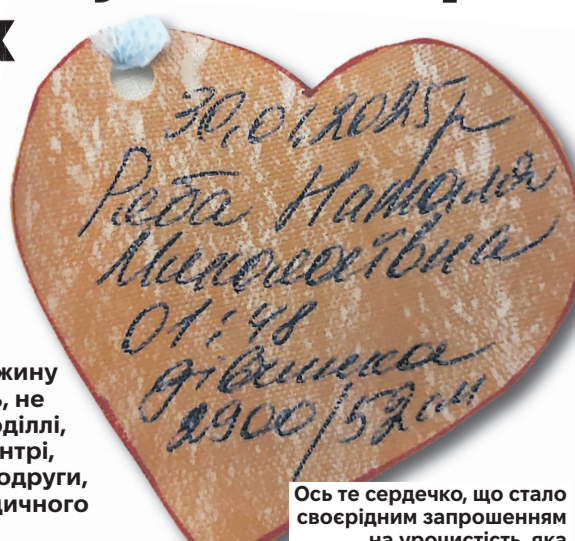 30.01.2025р
Реба Наталя
Миколаївна
01:48
дівчинка
2900/52см
жину
, не
оділлі,
нтрі,
одруги,
дичного
Ось те сердечко, що стало
своєрідним запрошенням
на урочистість, яка